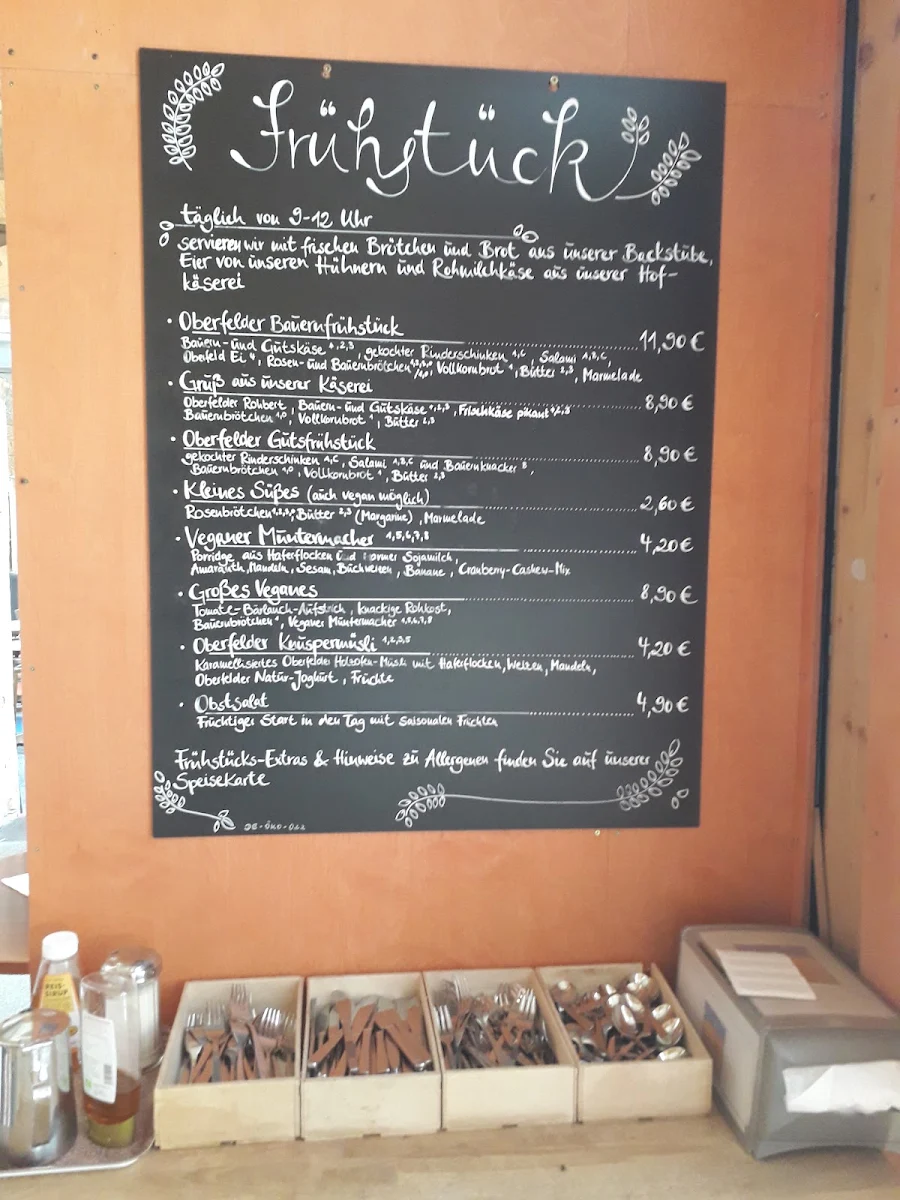 Frühstück
täglich von 9-12 Uhr
servieren wir mit frischen Brötchen und Brot aus unserer Backstube,
Eier von unseren Hühnern und Rohmilchkäse aus unserer Hof-
käserei
· Oberfelder Bauernfrühstück 11,90 €
Bauern- und Gutskäse 1,2,3, gekochter Rinderschinken 1,C, Salami 1,8,C,
Oberfeld Ei 4, Rosen- und Bauernbrötchen Vollkornbrot 1, Butter 2,3, Marmelade
· Gruß aus unserer Käserei 8,90 €
Oberfelder Rohbert, Bauern- und Gutskäse 1,2,3, Frischkäse pikant 1,2,3
Bauernbrötchen 1,0, Vollkornbrot 1, Butter 2,3
· Oberfelder Gutsfrühstück 8,90 €
gekochter Rinderschinken 1,C, Salami 1,8,C und Bauernknacker 8,
Bauernbrötchen 1,0, Vollkornbrot 1, Butter 2,3
· Kleines Süßes (auch vegan möglich) 2,60 €
Rosenbrötchen Butter 2,3 (Margarine), Marmelade
· Veganer Muntermacher 1,5,6,7,8 4,20 €
Porridge aus Haferflocken und warmer Sojamilch,
Amaranth, Mandeln, Sesam, Buchweizen, Banane, Cranberry-Cashew-Mix
· Großes Veganes 8,90 €
Tomate-Bärlauch-Aufstrich, knackige Rohkost,
Bauernbrötchen 1, Veganer Muntermacher 1,5,6,7,8
· Oberfelder Knuspermüsli 1,2,3,5 4,20 €
Karamellisiertes Oberfelder Holzofen-Müsli mit Haferflocken, Weizen, Mandeln,
Oberfelder Natur-Joghurt, Früchte
· Obstsalat 4,90 €
Fruchtiger Start in den Tag mit saisonalen Früchten
Frühstücks-Extras & Hinweise zu Allergenen finden Sie auf unserer
Speisekarte
REIS-
SIRUP